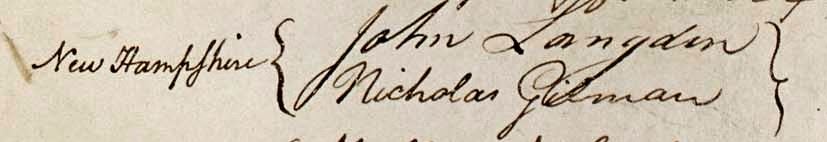 New Hampſhire { John Langdon }
Nicholas Gilman